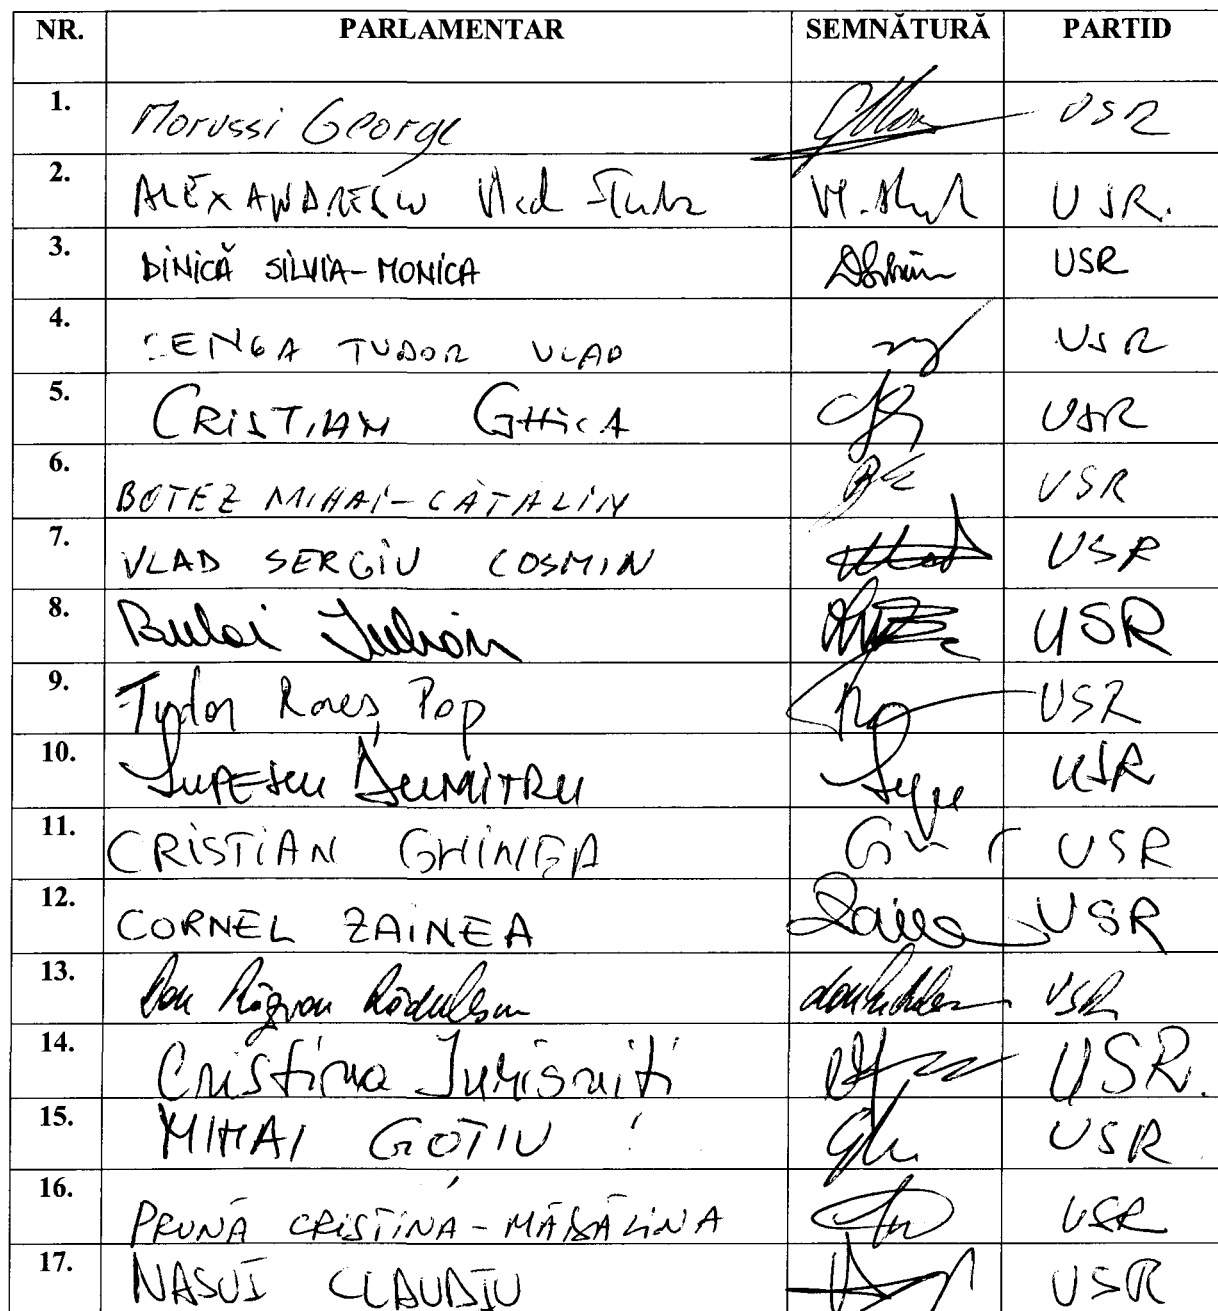 NR. PARLAMENTAR SEMNĂTURĂ PARTID
1. Morussi George USR
2. ALEXANDRESCU Vlad Tudor USR.
3. DINICĂ SILVIA-MONICA USR
4. BENGA TUDOR VLAD USR
5. CRISTIAN GHICA USR
6. BOTEZ MIHAI-CĂTĂLIN USR
7. VLAD SERGIU COSMIN USR
8. Bulai Iulian USR
9. Tudor Rareș Pop USR
10. LUPESCU DUMITRU USR
11. CRISTIAN GHINEA USR
12. CORNEL ZAINEA Zainea USR
13. Dan Răzvan Rădulescu USR
14. Cristina Iurișniți USR.
15. MIHAI GOȚIU USR
16. PRUNĂ CRISTINA-MĂDĂLINA USR
17. NASUI CLAUDIU USR